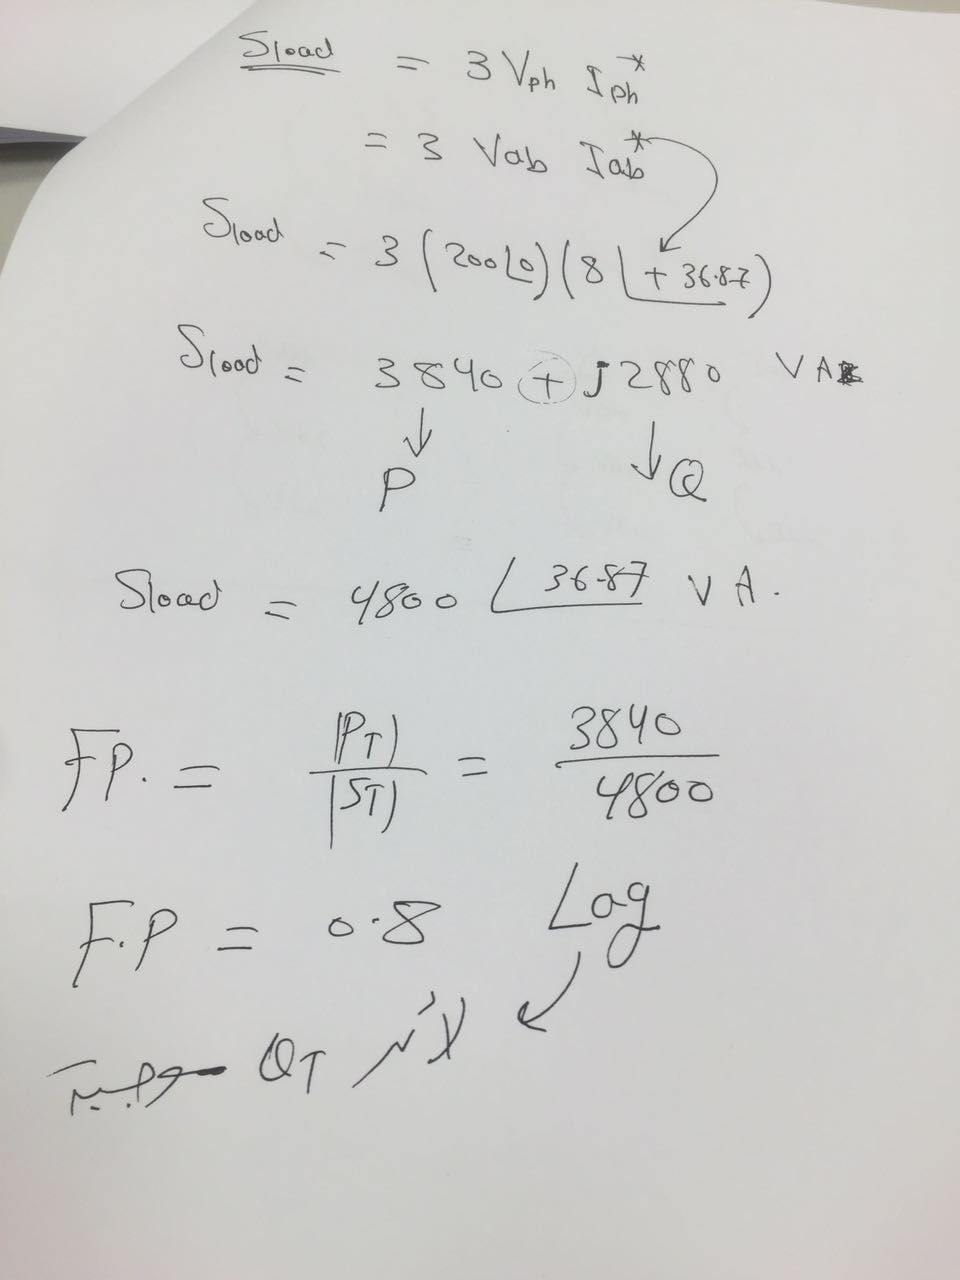 Sload = 3 Vph Iph*
= 3 Vab Iab*
Sload = 3 (200∠0) (8∠+36.87)
Sload = 3840 + j2880 VA
P Q
Sload = 4800 ∠36.87 VA.
F.P. = |PT| / |ST| = 3840 / 4800
F.P = 0.8 Lag
لأن QT موجبة